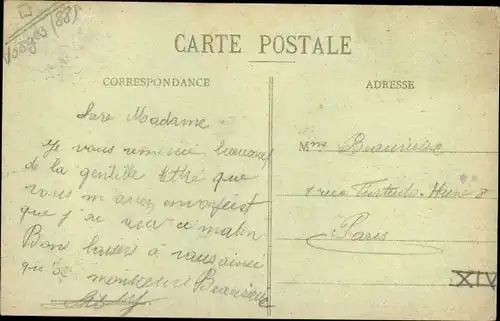 Vosges (88)
CARTE POSTALE
CORRESPONDANCE
ADRESSE
Madame
Je vous remercie beaucoup
de la gentille lettre que
vous m'avez envoyé et
que j'ai reçu ce matin
Bons baisers à vous ainsi
qu'à monsieur Beaurieux
Mme Beaurieux
rue Furtado-Heine 8
Paris
XIV